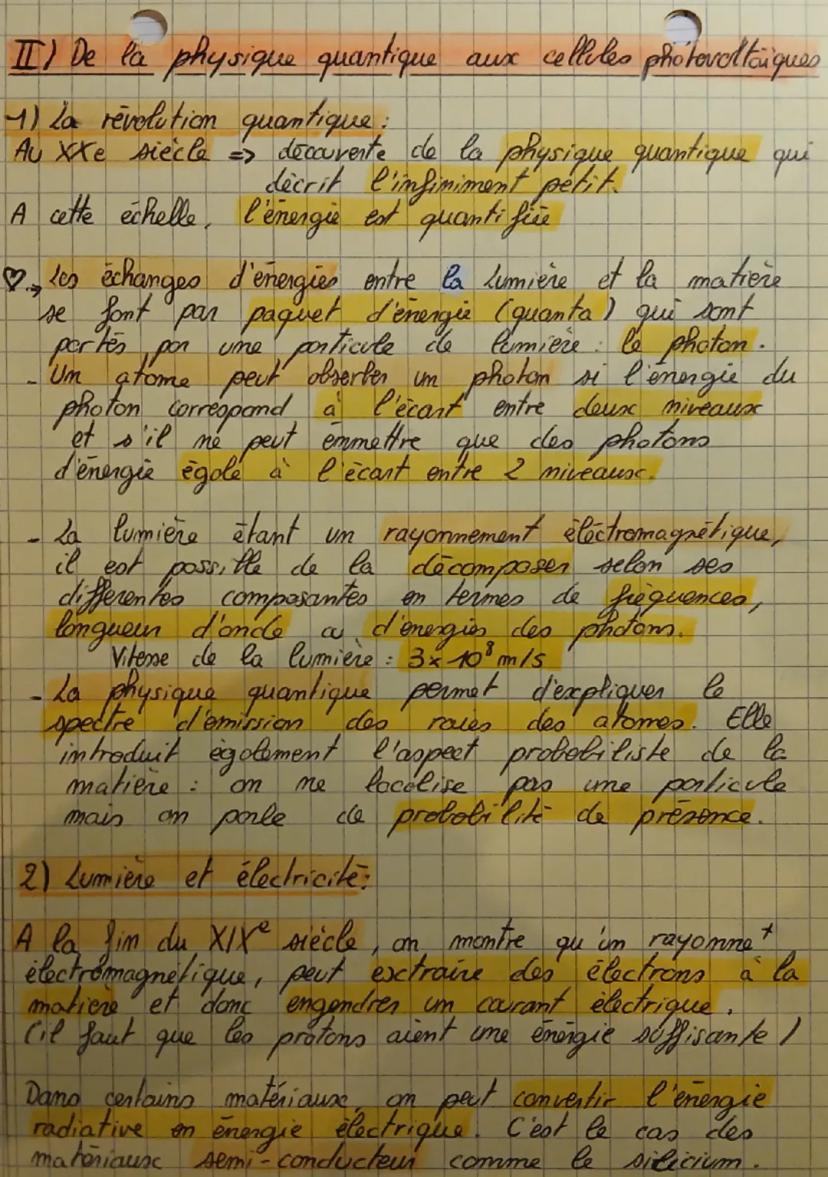 II) De la physique quantique aux cellules photovoltaïques
1) La révolution quantique :
Au XXe siècle => découverte de la physique quantique qui
décrit l'infiniment petit.
A cette échelle, l'énergie est quantifiée
♡→ Les échanges d'énergies entre la lumière et la matière
se font par paquet d'énergie (quanta) qui sont
portés par une particule de lumière : le photon.
- Un atome peut absorber un photon si l'énergie du
photon correspond à l'écart entre deux niveaux
et s'il ne peut émmettre que des photons
d'énergie égale à l'écart entre 2 niveaux.
- La lumière étant un rayonnement éléctromagnétique,
il est possible de la décomposer selon ses
différentes composantes en termes de fréquences,
longueur d'onde ou d'énergies des photons.
Vitesse de la lumière : 3x10⁸ m/s
- La physique quantique permet d'expliquer le
spectre d'émission des raies des atomes. Elle
introduit également l'aspect probabiliste de la
matière : on ne localise pas une particule
mais on parle de probabilité de présence.
2) Lumière et électricité :
A la fin du XIXe siècle, on montre qu'un rayonnet
électromagnétique, peut extraire des électrons à la
matière et donc engendrer un courant électrique.
(il faut que les protons aient une énergie suffisante)
Dans certains matériaux, on peut convertir l'énergie
radiative en énergie électrique. C'est le cas des
matériaux semi-conducteur comme le silicium.